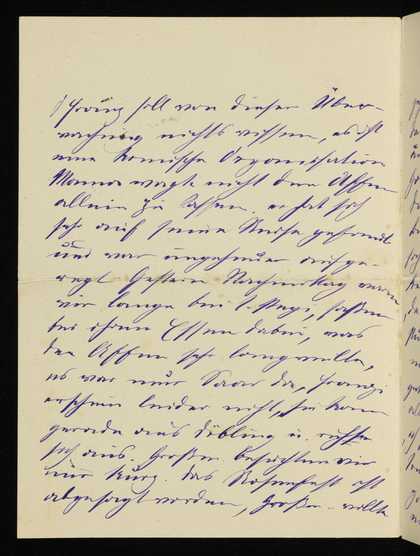 Franz soll von dieser Über-
wachung nichts wissen, es ist
eine komische Organisation
Mama wagte nicht den Affen
allein zu lassen. er hat sich
sehr auf seine Reise gefreut
und war ungeheuer aufge-
regt Gestern Nachmittag waren
wir lange bei saßen
bei ihrem Essen dabei, was
den Affen sehr langweilte,
es war nur da, Franzi
erschien leider nicht, sie kam
gerade aus Döbling u.
sich aus. Großen besuchten wir
nur kurz. das Rosenfest ist
abgesagt worden, Großen wollte